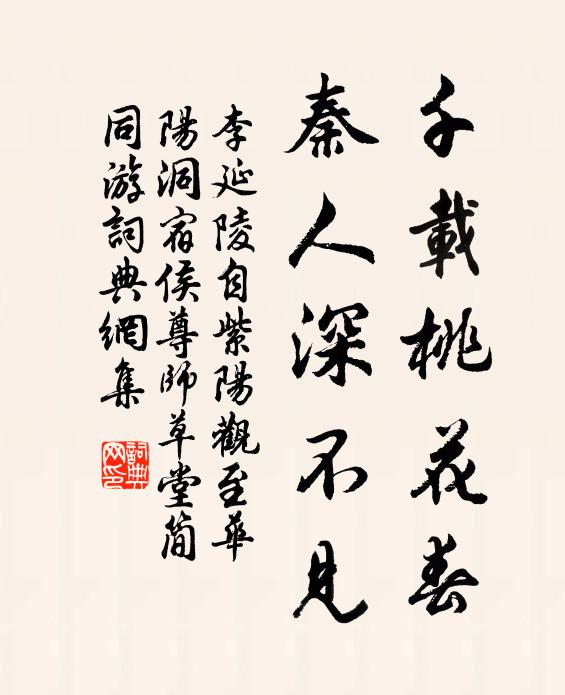 千載桃花春
秦人深不見
李延陵自紫陽觀至華
陽洞宿侯尊師草堂簡
同游詞典網集
詞典网印